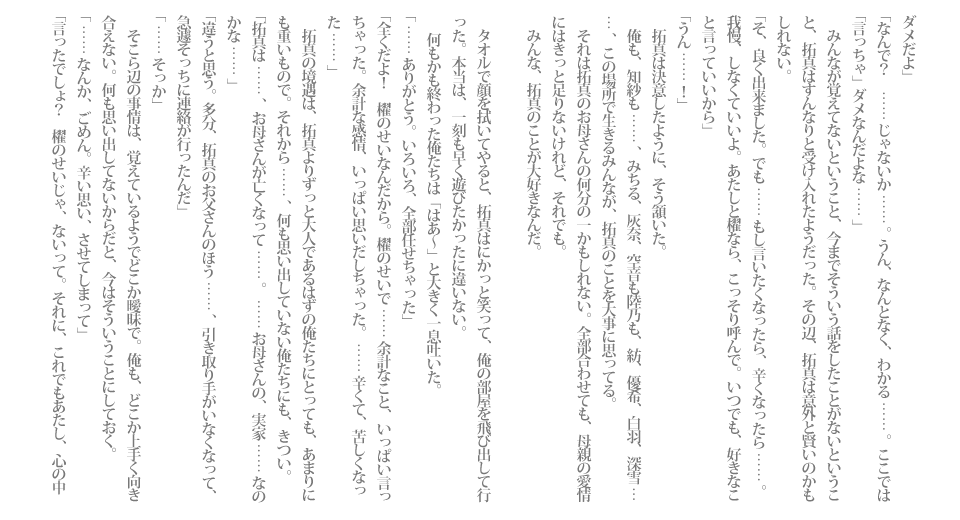 ダメだよ」
「なんで？　……じゃないか……。うん、なんとなく、わかる……。ここでは
「言っちゃ」ダメなんだよな……」
　みんなが覚えてないということ、今までそういう話をしたことがないというこ
と、拓真はすんなりと受け入れたようだった。その辺、拓真は意外と賢いのかも
しれない。
「そ、良く出来ました。でも……もし言いたくなったら、辛くなったら……。
我慢、しなくていいよ。あたしと櫂なら、こっそり呼んで。いつでも、好きなこ
と言っていいから」
「うん……！」
　拓真は決意したように、そう頷いた。
　俺も、知紗も……、みちる、灰奈、空音も陸乃も、紡、優希、白羽、深雪…
…、この場所で生きるみんなが、拓真のことを大事に思ってる。
　それは拓真のお母さんの何分の一かもしれない。全部合わせても、母親の愛情
にはきっと足りないけれど、それでも。
　みんな、拓真のことが大好きなんだ。
　タオルで顔を拭いてやると、拓真はにかっと笑って、俺の部屋を飛び出して行
った。本当は、一刻も早く遊びたかったに違いない。
　何もかも終わった俺たちは「はあ〜」と大きく一息吐いた。
「……ありがとう。いろいろ、全部任せちゃった」
「全くだよ！　櫂のせいなんだから。櫂のせいで……余計なこと、いっぱい言っ
ちゃった。余計な感情、いっぱい思いだしちゃった。……辛くて、苦しくなっ
た……」
　拓真の境遇は、拓真よりずっと大人であるはずの俺たちにとっても、あまりに
も重いもので。それから……、何も思い出していない俺たちにも、きつい。
「拓真は……、お母さんが亡くなって……。……お母さんの、実家……なの
かな……」
「違うと思う。多分、拓真のお父さんのほう……、引き取り手がいなくなって、
急遽そっちに連絡が行ったんだ」
「……そっか」
　そこら辺の事情は、覚えているようでどこか曖昧で。俺も、どこか上手く向き
合えない。何も思い出してないからだと、今はそういうことにしておく。
「……なんか、ごめん。辛い思い、させてしまって」
「言ったでしょ？　櫂のせいじゃ、ないって。それに、これでもあたし、心の中